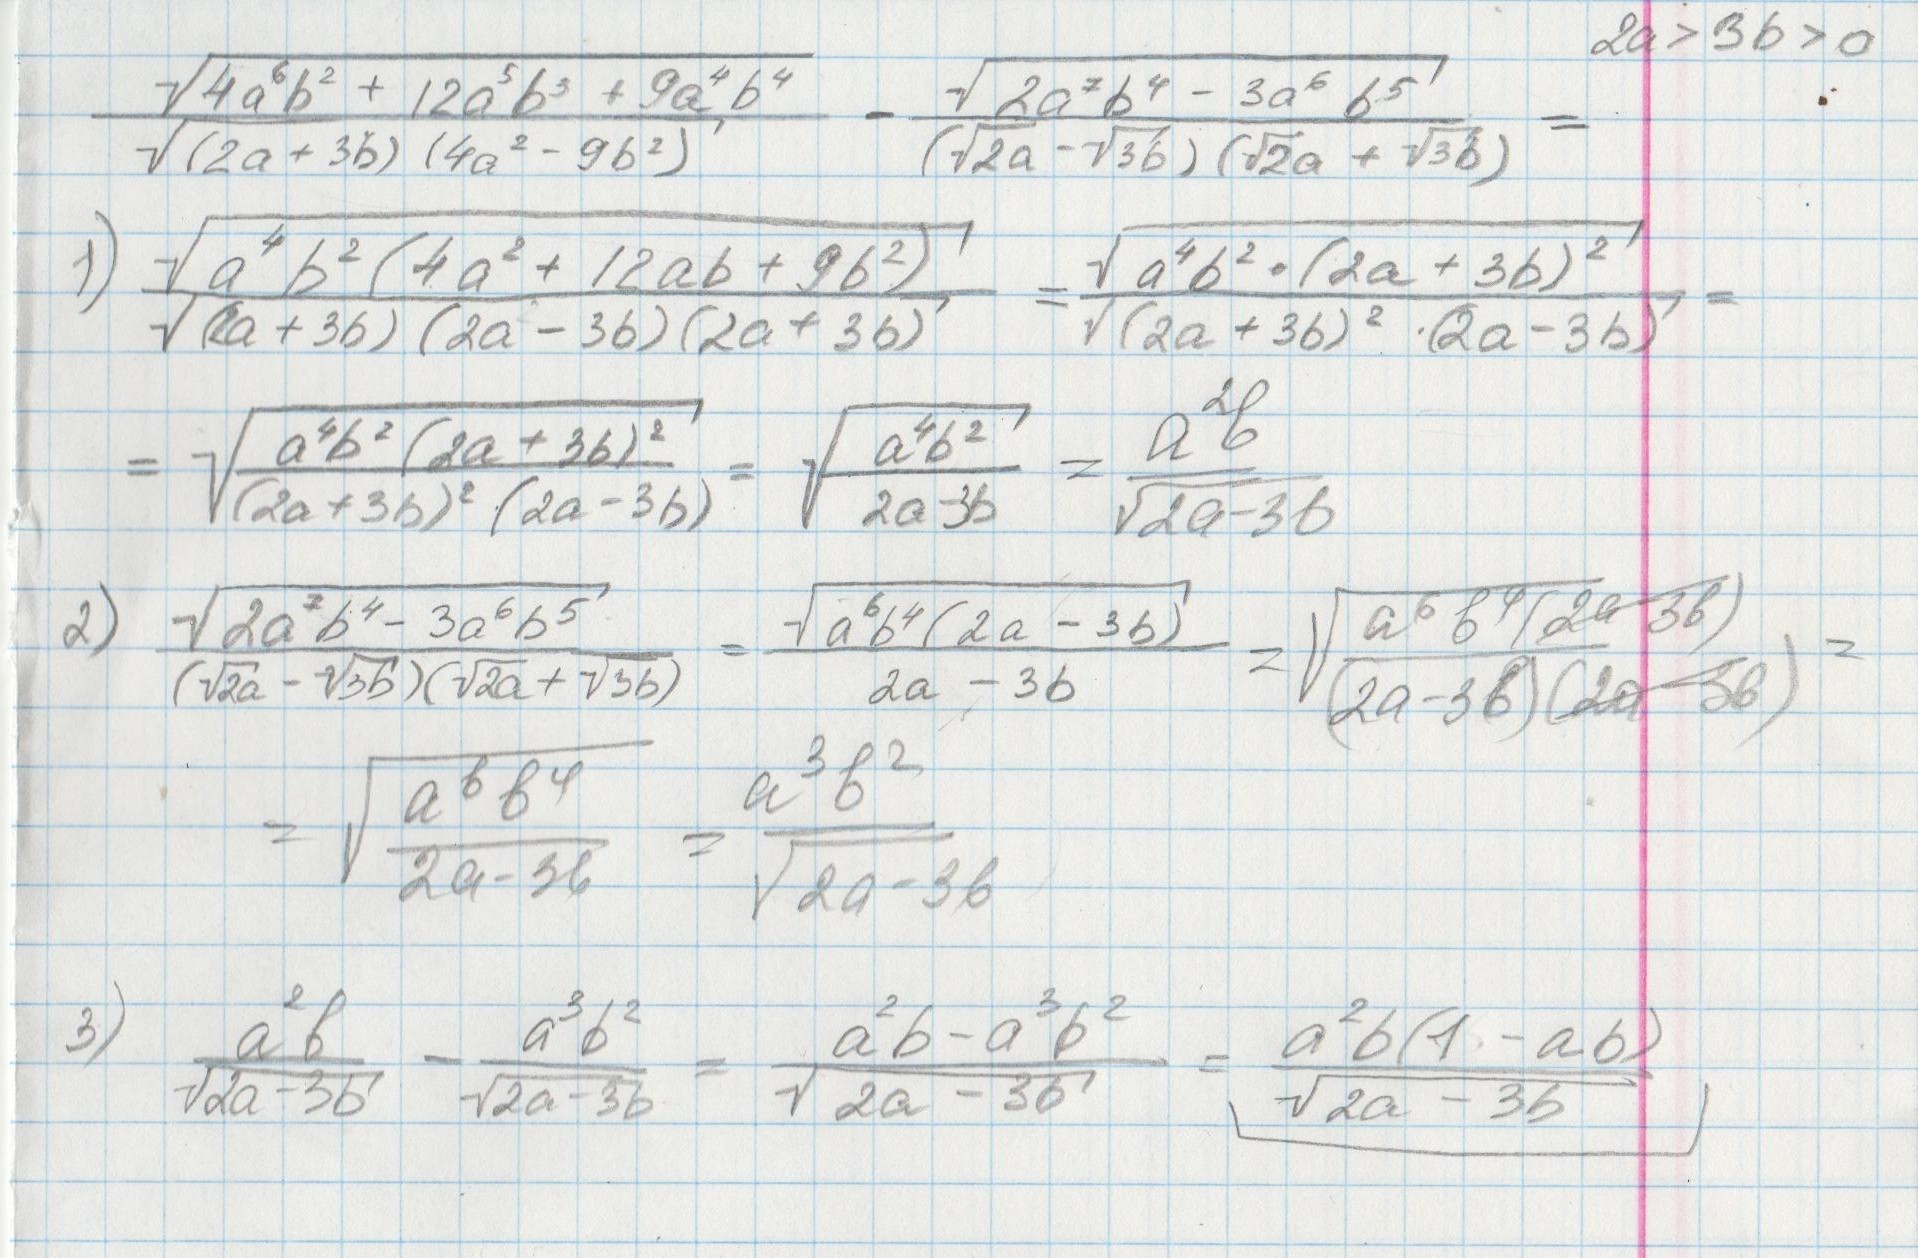 2a > 3b > 0
√(4a⁶b² + 12a⁵b³ + 9a⁴b⁴) / √((2a + 3b)(4a² - 9b²)) - √(2a⁷b⁴ - 3a⁶b⁵) / ((√2a - √3b)(√2a + √3b)) =
1) √(a⁴b²(4a² + 12ab + 9b²)) / √((2a + 3b)(2a - 3b)(2a + 3b)) = √(a⁴b² · (2a + 3b)²) / √((2a + 3b)² · (2a - 3b)) =
= √(a⁴b²(2a + 3b)² / ((2a + 3b)² · (2a - 3b))) = √(a⁴b² / (2a - 3b)) = a²b / √(2a - 3b)
2) √(2a⁷b⁴ - 3a⁶b⁵) / ((√2a - √3b)(√2a + √3b)) = √(a⁶b⁴(2a - 3b)) / (2a - 3b) = √(a⁶b⁴(2a - 3b) / ((2a - 3b)(2a - 3b))) =
= √(a⁶b⁴ / (2a - 3b)) = a³b² / √(2a - 3b)
3) a²b / √(2a - 3b) - a³b² / √(2a - 3b) = (a²b - a³b²) / √(2a - 3b) = a²b(1 - ab) / √(2a - 3b)